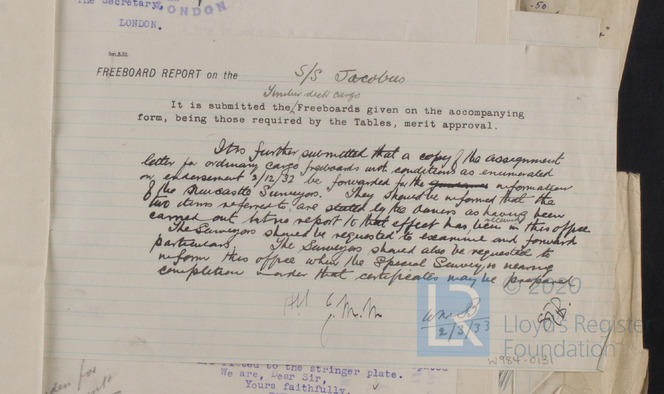 The Secretary,
LONDON
LONDON.
.50
FREEBOARD REPORT on the S/S Jacobus
Timber deck cargo
It is submitted the Freeboards given on the accompanying
form, being those required by the Tables, merit approval.
It is further submitted that a copy of the assignment
letter for ordinary cargo freeboards with conditions as enumerated
on endorsement 2/12/32 be forwarded for the information
of the Newcastle Surveyors. They should be informed that the
two items referred to are stated by the Owners as having been
carried out but no report to that effect has been received in this office
The Surveyors should be requested to examine and forward
particulars. The Surveyors should also be requested to
inform this office when the Special Survey is nearing
completion in order that certificates may be prepared
2/3/33
© 2020
LR
Lloyd's Register
Foundation
W984-0131
to the stringer plate.
We are, Dear Sir,
Yours faithfully,